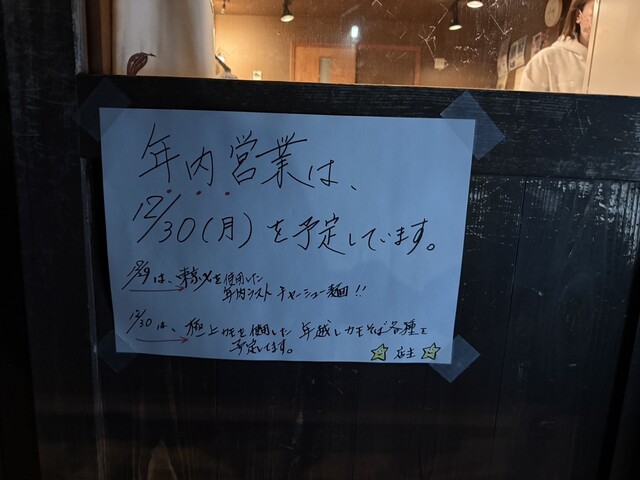 年内営業は、
12/30(月)を予定しています。
12/29は、東京Xを使用した
年内ラスト チャーシュー麺!!
12/30は、極上カモを使用した 年越しカモそば各種を
予定してます。
店主